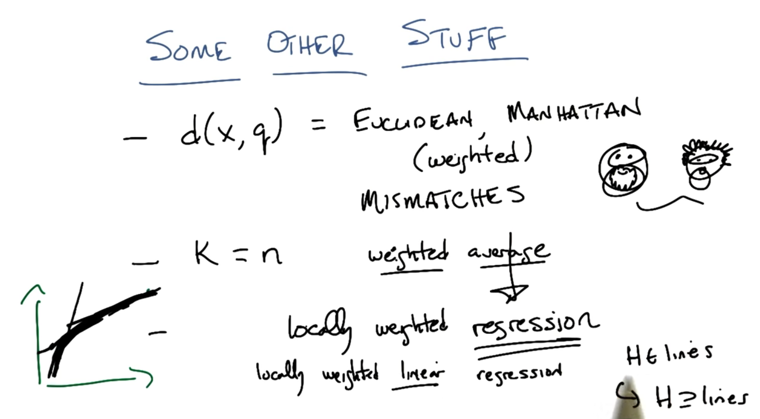 SOME OTHER STUFF
– d(x,q) = EUCLIDEAN, MANHATTAN
(weighted)
MISMATCHES
– K = n weighted average
– locally weighted regression
locally weighted linear regression
H ∈ lines
↳ H ⊇ lines